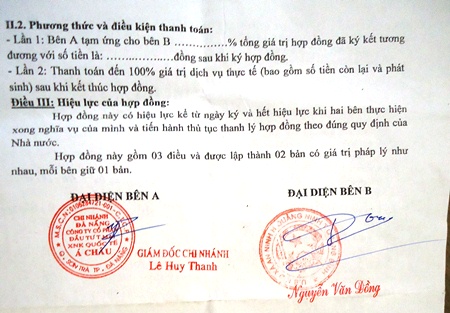 II.2. Phương thức và điều kiện thanh toán:
- Lần 1: Bên A tạm ứng cho bên B ……………% tổng giá trị hợp đồng đã ký kết tương
đương với số tiền là: ………………đồng sau khi ký hợp đồng.
- Lần 2: Thanh toán đến 100% giá trị dịch vụ thực tế (bao gồm số tiền còn lại và phát
sinh) sau khi kết thúc hợp đồng.
Điều III: Hiệu lực của hợp đồng:
Hợp đồng này có hiệu lực kể từ ngày ký và hết hiệu lực khi hai bên thực hiện
xong nghĩa vụ của mình và tiến hành thủ tục thanh lý hợp đồng theo đúng quy định của
Nhà nước.
Hợp đồng này gồm 03 điều và được lập thành 02 bản có giá trị pháp lý như
nhau, mỗi bên giữ 01 bản.
ĐẠI DIỆN BÊN A
ĐẠI DIỆN BÊN B
CHI NHÁNH
ĐÀ NẴNG
CÔNG TY CỔ PHẦN
ĐẦU TƯ T.M
XNK QUỐC TẾ
Á CHÂU
Q. SƠN TRÀ - TP. ĐÀ NẴNG
GIÁM ĐỐC CHI NHÁNH
Lê Huy Thanh
Nguyễn Văn Đồng